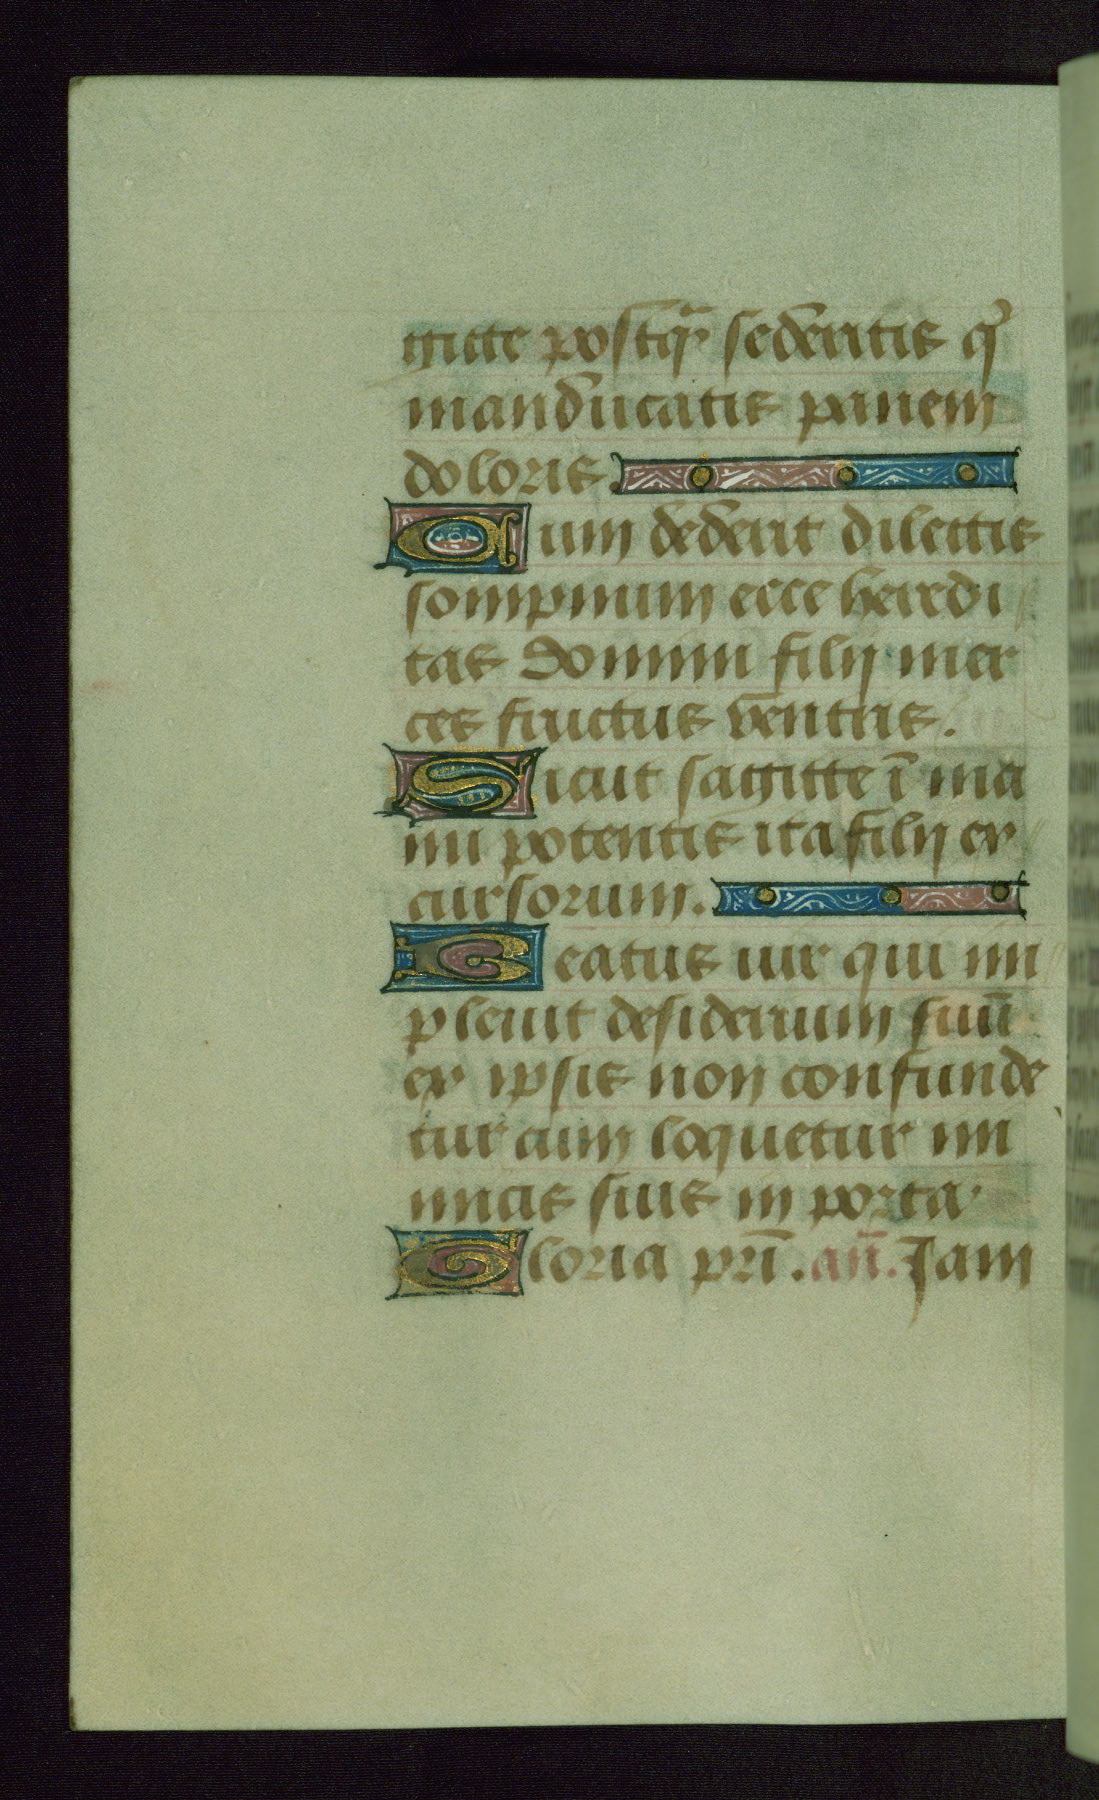 gitte postq̃ sederitis q̾
manducatis panem
doloris.
Cum dederit dilectis
sompnum ecce heredi
tas domini filij mer
ces fructus ventris.
Sicut sagitte ī ma
nu potentis ita filij ex
cussorum.
Beatus uir qui im
pleuit desiderium suū
ex ipsis non confunde
tur cum loquetur ini
micis suis in porta.
Gloria pr̄i. an̄. Jam